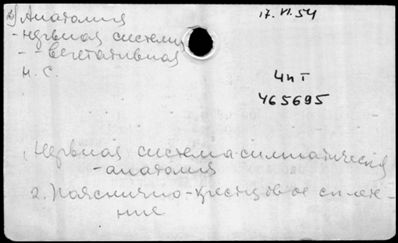 Анатомия
17.VI.54
- нервная система
- вегетативная
н.с.
ЧпТ
465695
1. Нервная система симпатическая
- анатомия
2. Пояснично-крестцовое сплете-
ние